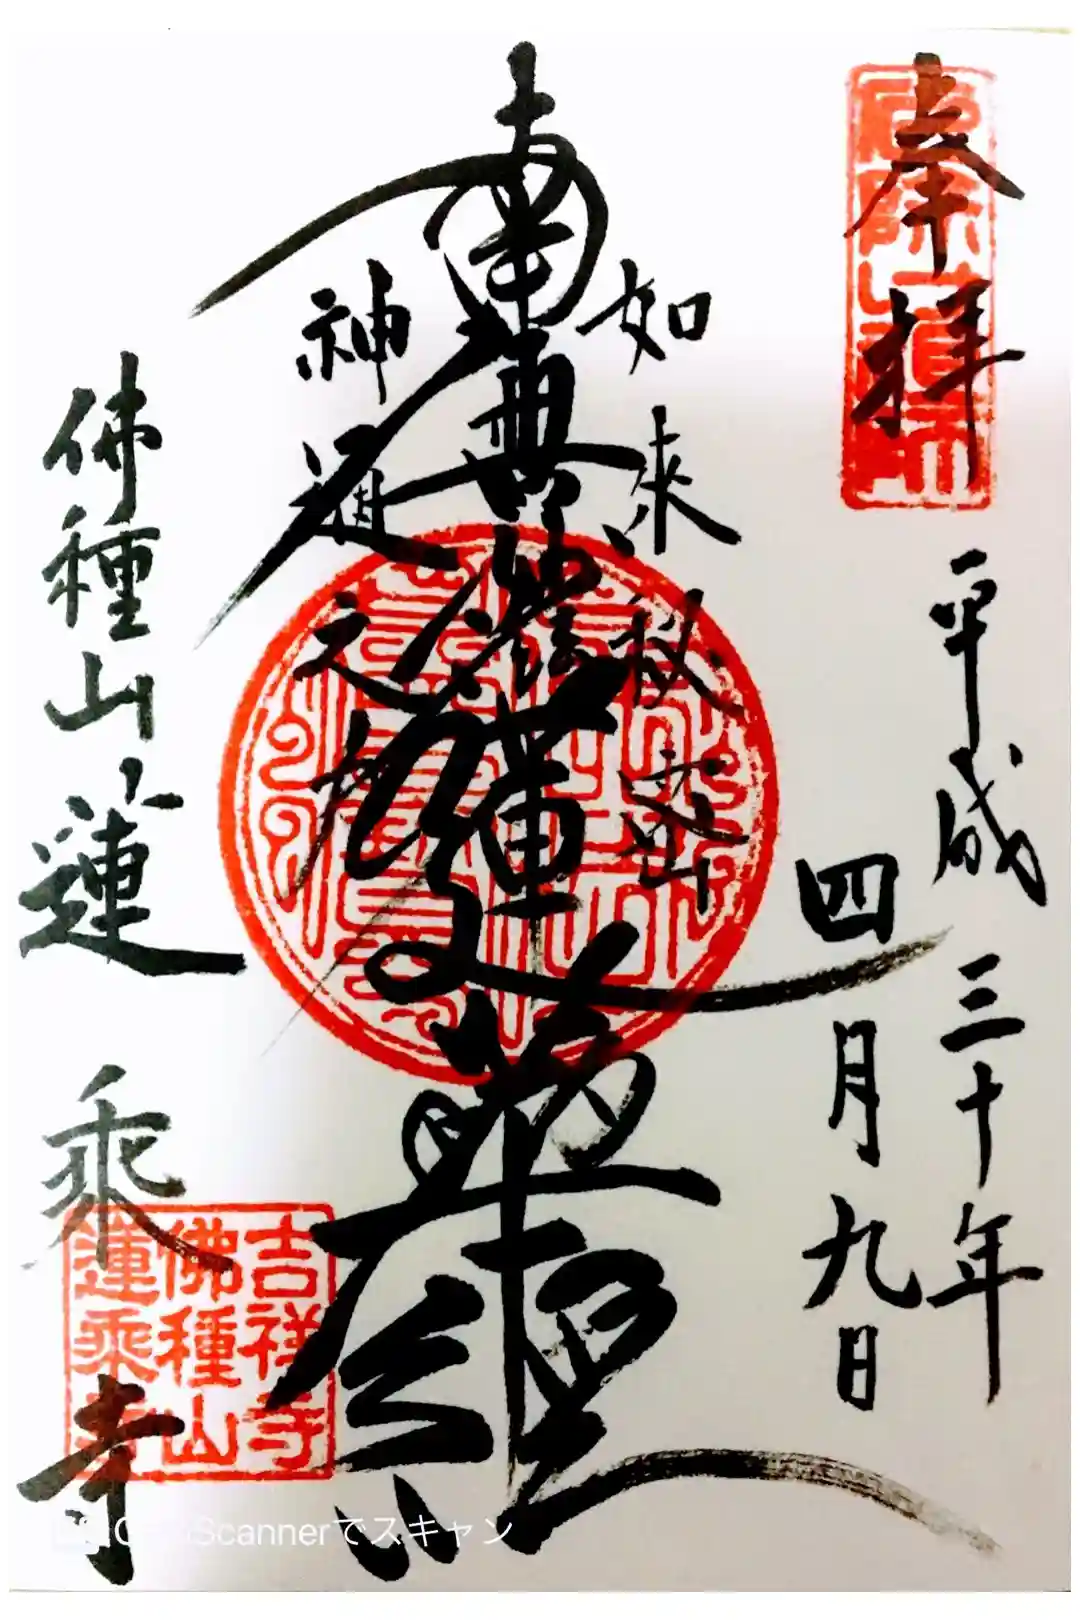 奉拝
平成三十年
四月九日
如来秘密
南無妙法蓮華経
神通之力
佛種山蓮乗寺
吉祥寺
佛種山
蓮乗寺
Scannerでスキャン